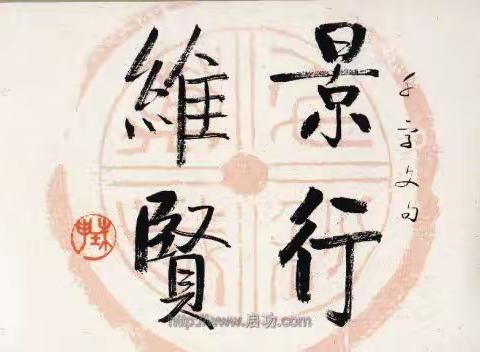 千字文句
景行
維賢
http://www.启功.com